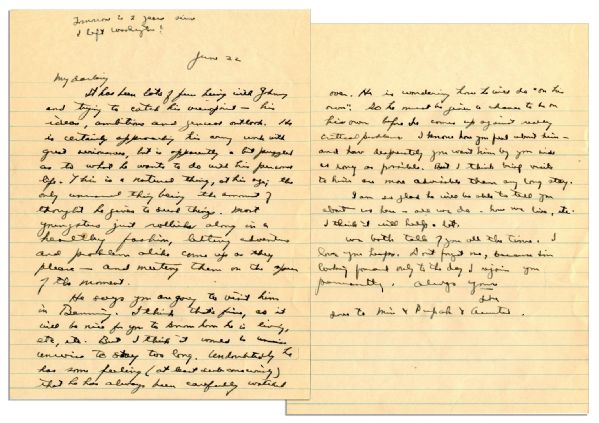 Tomorrow is 2 years since
I left Washington!
June 22
My darling
It has been lots of fun being with Johnny
and trying to catch his viewpoint - his
ideas, ambitions and general outlook. He
is certainly approaching his army work with
great seriousness, but is apparently a bit puzzled
as to what he wants to do with his personal
life. This is a natural thing, at his age; the
only unusual thing being the amount of
thought he gives to such things. Most
youngsters just rollick along in a
healthy fashion, letting adventure
and problem alike come up as they
please - and meeting them on the spur
of the moment.
He says you are going to visit him
in Benning. I think that's fine, as it
will be nice for you to know how he is living,
etc, etc. But I think it would be
unwise to stay too long. Undoubtedly he
has some feeling (at least subconsciously)
that he has always been carefully watched
over. He is wondering how he will do "on his
own". So he must be given a chance to be on
his own before he comes up against really
critical problems. I know how you feel about him -
and how desperately you want him by your side
as long as possible. But I think brief visits
to him are more advisable than any long stay.
I am so glad he will be able to tell you
about us here - all we do - how we live, etc.
I think it will help a lot.
We both talk of you all the time. I
love you heaps. Don't forget me, because I'm
looking forward only to the day I rejoin you
permanently. Always yours
Love to Min &